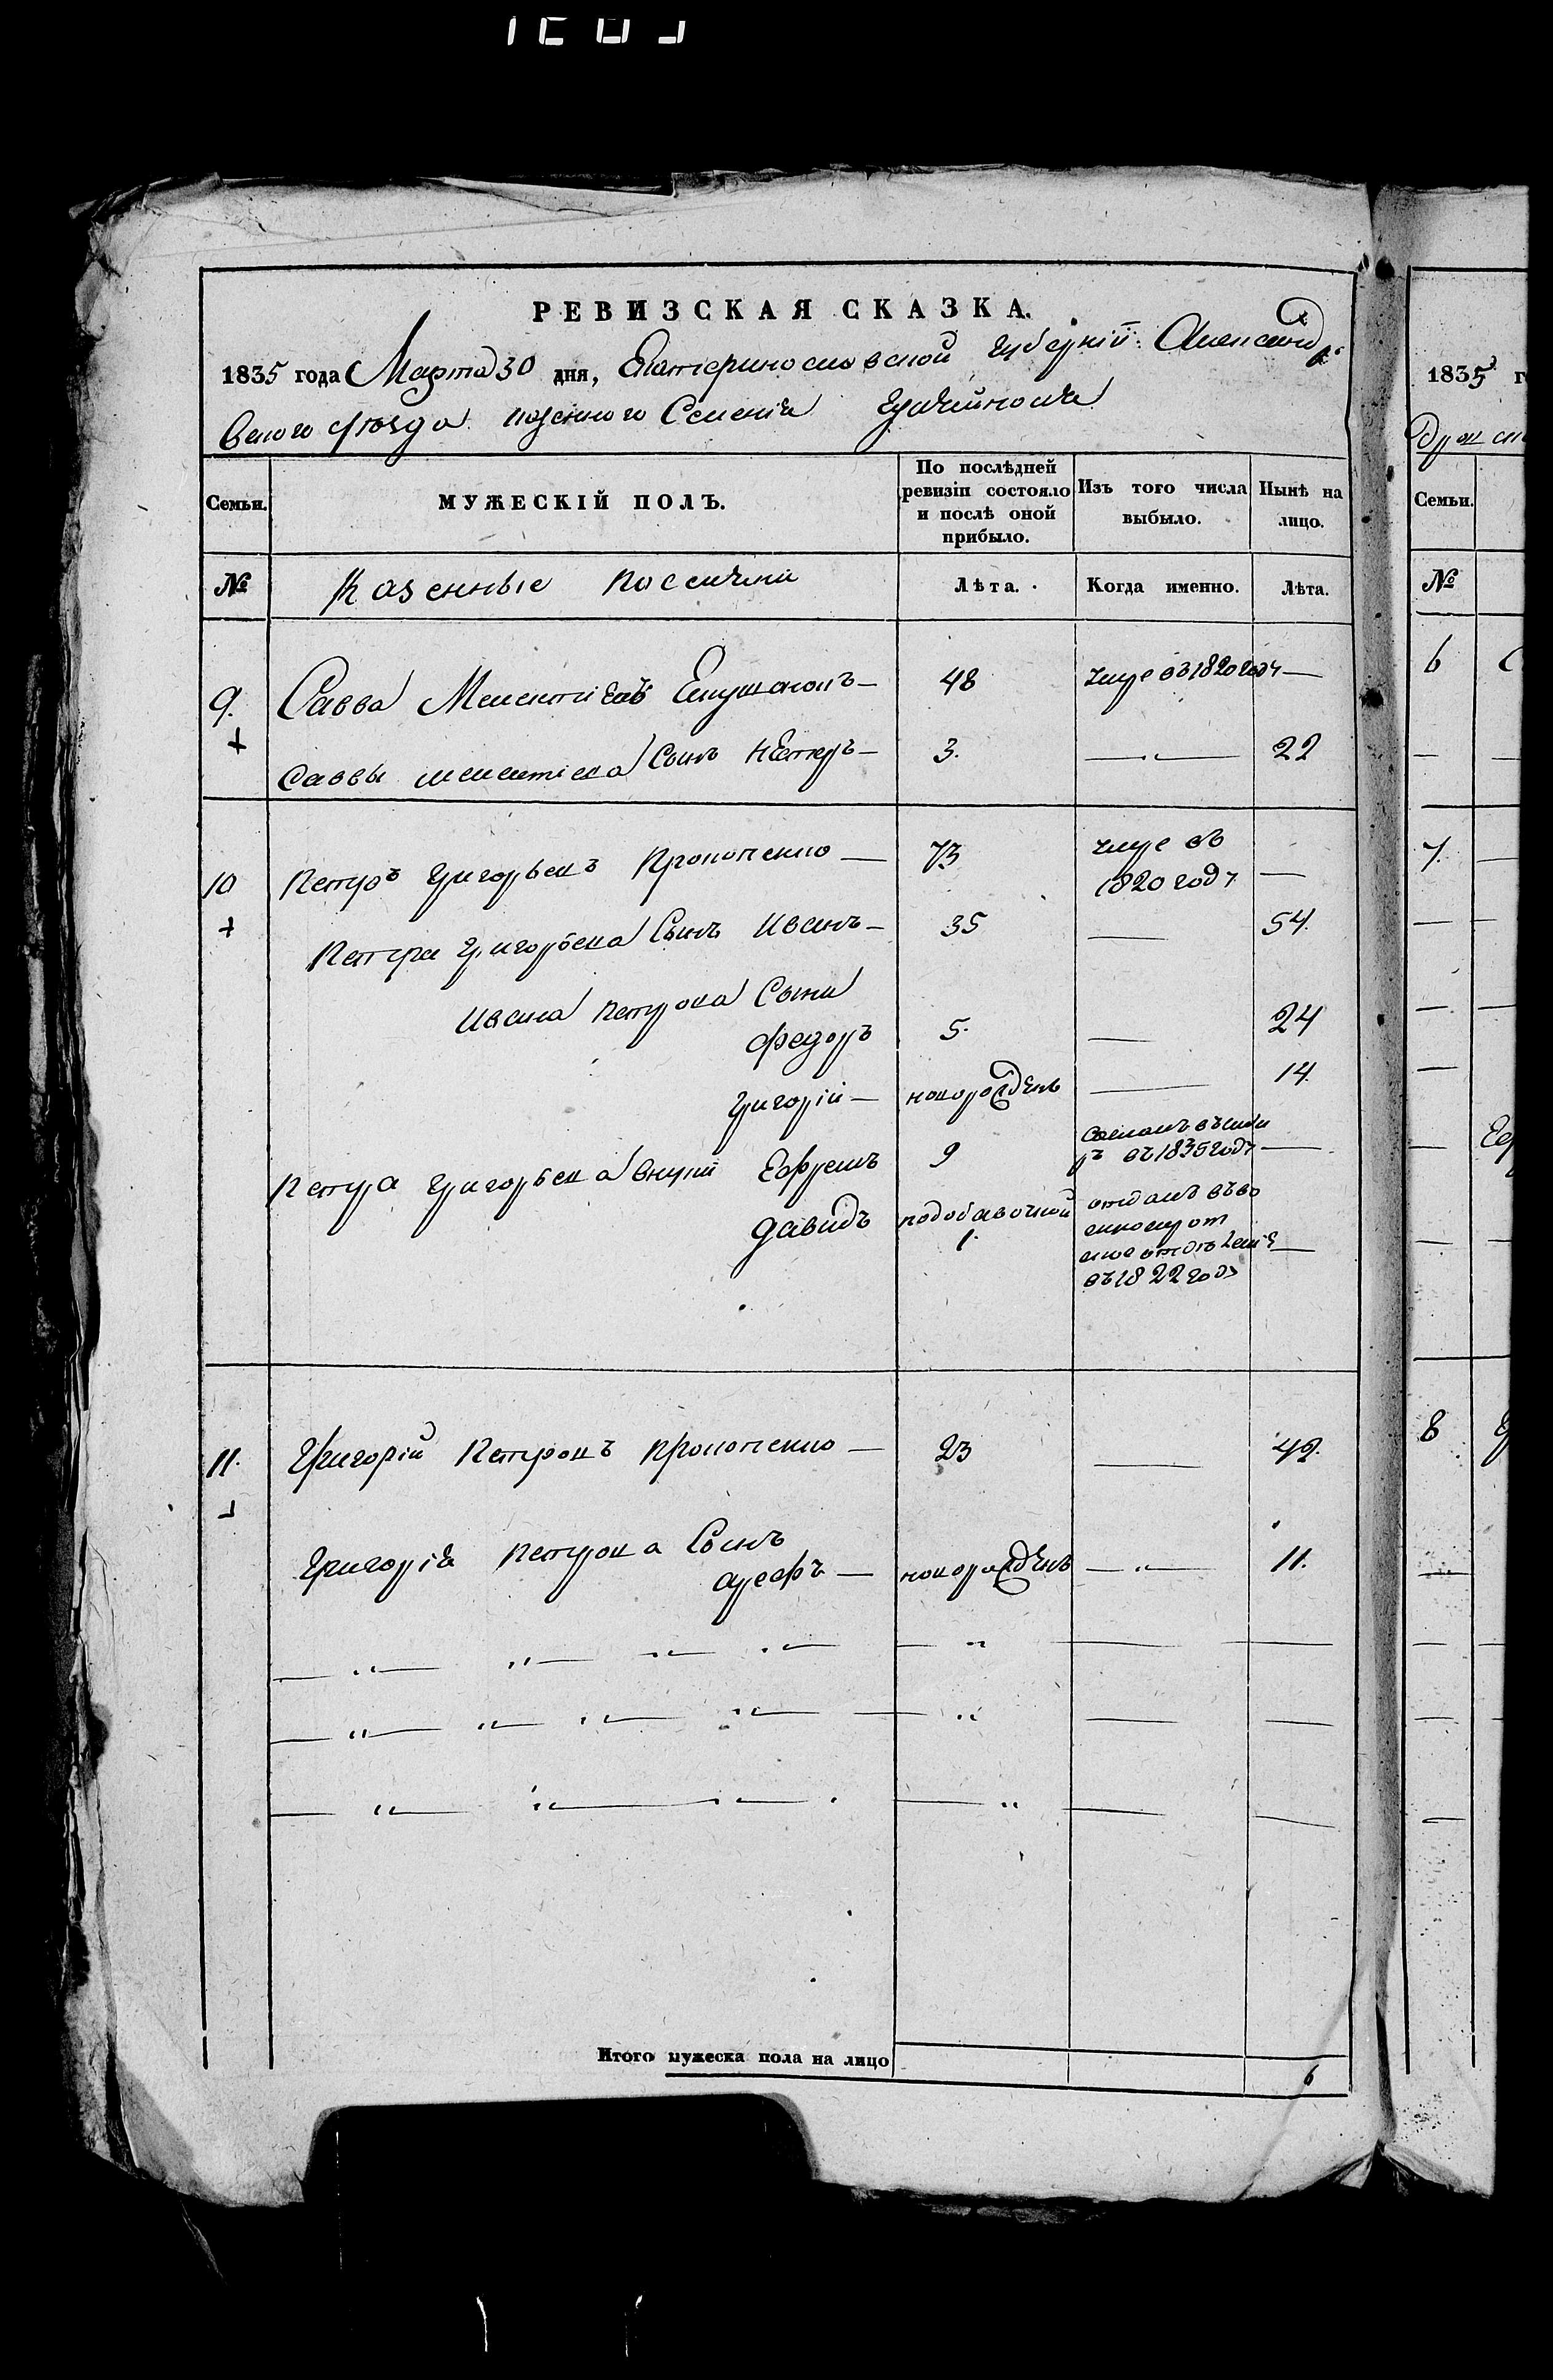 РЕВИЗСКАЯ СКАЗКА.
1835 года Марта 30 дня, Екатериносло вской губернiи Александро
вского уѣзда казенного Селенiя
Семьи.
МУЖЕСКІЙ ПОЛЪ.
По послѣдней ревизіи состояло и послѣ оной прибыло.
Изъ того числа выбыло.
Нынѣ на лицо.
№
Казенные Поселяни
Лѣта.
Когда именно.
Лѣта.
9. Савва Мелентiевъ — 48 умре въ 1820 годѣ —
Саввы мелентiева Сынъ Петръ — 3. — 22
10 Петръ Григорьевъ Прокопенко — 73 умре въ 1820 годѣ —
Петра Григорьева Сынъ Иванъ — 35 — 54.
Ивана петрова Сыни
Федоръ 5. — 24
Григорій — новорожденъ — 14.
Петра григорьева внуки Ефремъ 9 сосланъ въ сиби
ръ въ 1835 годѣ —
Давидъ подобавочной 1. отданъ въ во
енносирот
ское отдѣленiе —
въ 1822 годѣ
11. Григорій Петровъ прокопенко — 23 — 42.
Григорiя петрова Сынъ
арефъ — новорожденъ — 11.
Итого мужеска пола на лицо
6
1835
Семьи.
№
6
7.
8